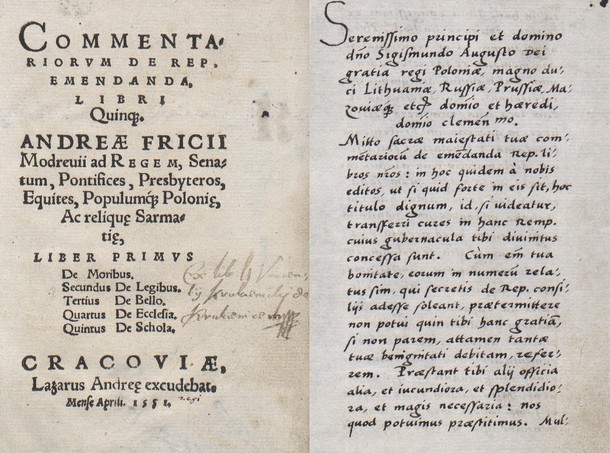 COMMENTA-
RIORVM DE REP.
EMENDANDA,
LIBRI
Quinq́.
ANDREÆ FRICII
Modreuii ad REGEM, Sena-
tum, Pontifices, Presbyteros,
Equites, Populumq́ Polonię,
Ac reliquę Sarma-
tię,
LIBER PRIMVS
De Moribus.
Secundus De Legibus.
Tertius De Bello.
Quartus De Ecclesia.
Quintus De Schola.
CRACOVIÆ,
Lazarus Andreę excudebat.
Mense Aprili. 1551.
Serenissimo principi et domino
dño Sigismundo Augusto Dei
gratia regi Poloniæ, magno du-
ci Lithuaniæ, Russiæ, Prussiæ, Ma-
zouiæq́ȝ etcȝ domino et hæredi,
domino clemen.mo.
Mitto sacræ maiestati tuæ com-
mẽtariorũ de emẽdanda Rep. li-
bros nr̃os: in hoc quidem à nobis
editos, ut si quid forte in eis sit, hoc
titulo dignum, id, si uideatur,
transferri cures in hanc Remp.
cuius gubernacula tibi diuinitus
concessa sunt. Cùm em̃ tua
bonitate, eorum in numerũ rela-
tus sim, qui secretis de Rep. consi-
lijs adesse soleant, prætermittere
non potui quin tibi hanc gratiã,
si non parem, attamen tantæ
tuæ benignitati debitam, refer-
rem. Præstant tibi alij officia
alia, et iucundiora, et splendidio-
ra, et magis necessaria: nos
quod potuimus præstitimus. Mul-